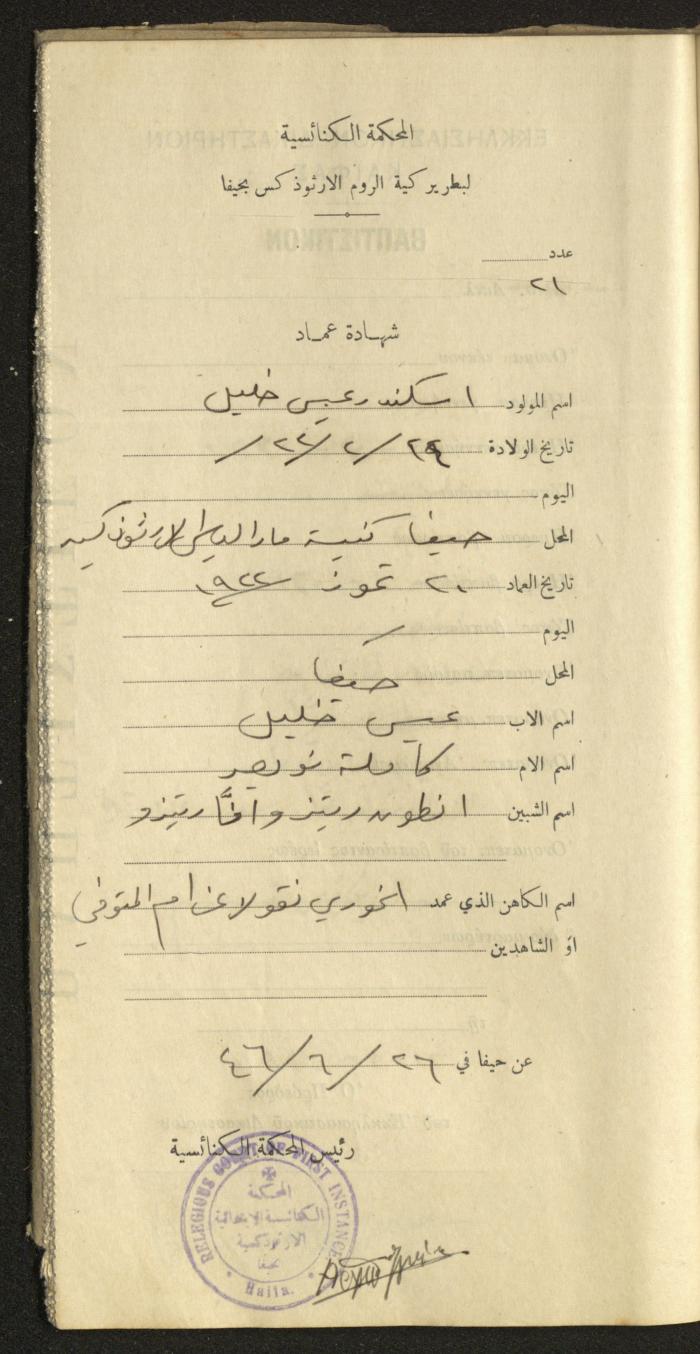 المحكمة الكنائسية
لبطريركية الروم الارثوذكس بحيفا
عدد
٢١
شهادة عماد
اسم المولود اسكندر عيسى خليل
تاريخ الولادة ٢٤/٢/٢٢
اليوم
المحل حيفا كنيسة مار الياس الارثوذكسية
تاريخ العماد ٢٠ تموز ١٩٢٢
اليوم
المحل حيفا
اسم الاب عيسى خليل
اسم الام كاملة
اسم الشبين انطون
اسم الكاهن الذي عمد الخوري نقولا المتوفي
او الشاهدين
عن حيفا في ٢٦/٦/٤٦
رئيس المحكمة الكنائسية
RELEGIOUS COURT OF FIRST INSTANCE
المحكمة
الكنائسية الابتدائية
الارثوذكسية
بحيفا
Haifa.